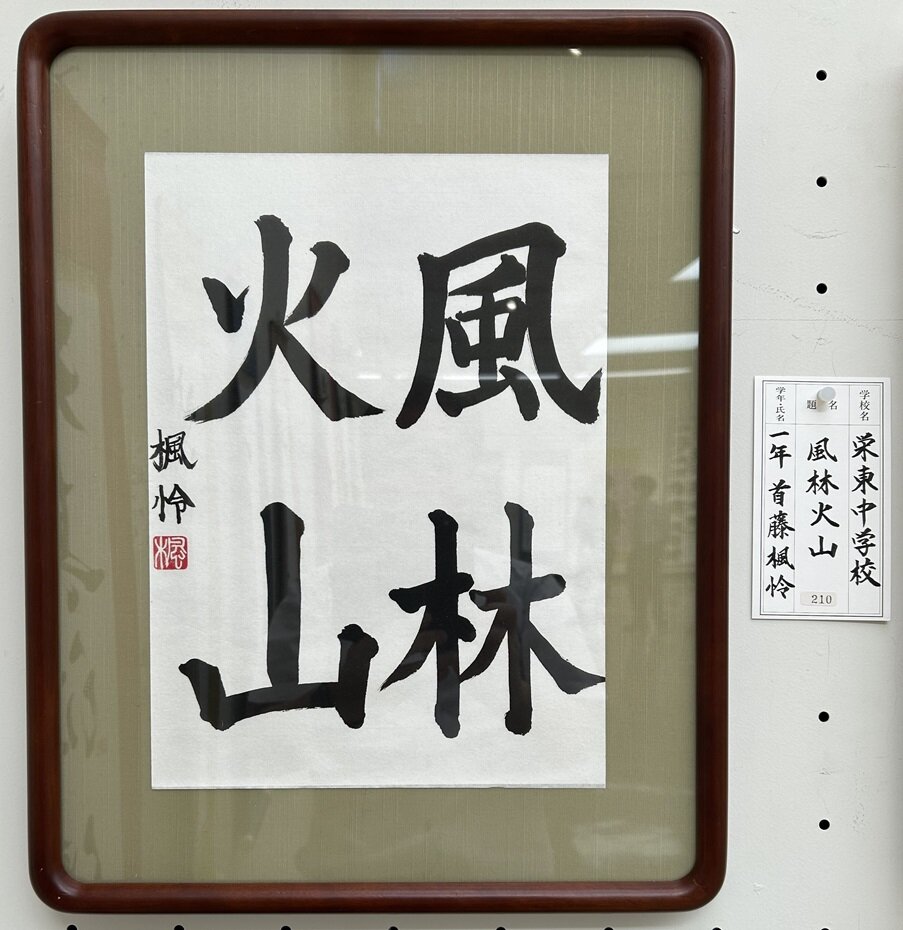 風林
火山
楓怜
楓
学校名
栄東中学校
題名
風林火山
210
学年・氏名
一年 首藤楓怜